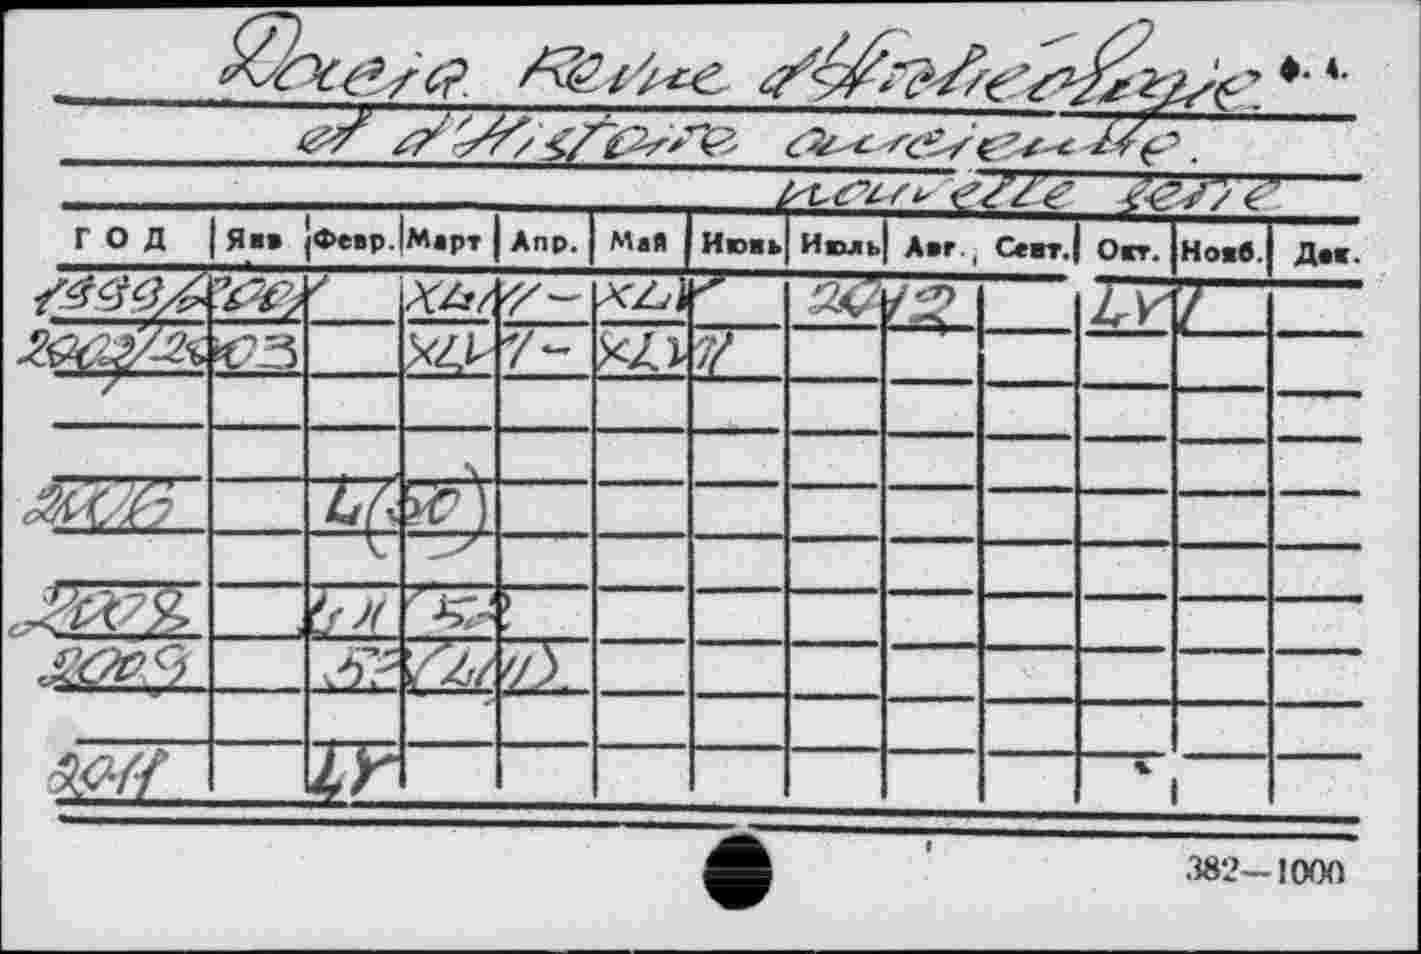 Dacia. Revue d'Archéologie
et d'Histoire ancienne.
nouvelle serie
ГОД Янв Февр. Март Апр. Май Июнь Июль Авг. Сент. Окт. Нояб. Дек.
1999/2001 2012 LVI
2002/2003
2006 L(50)
2008 LII (52
2009 53 (LIII)
2011 LV
382—1000